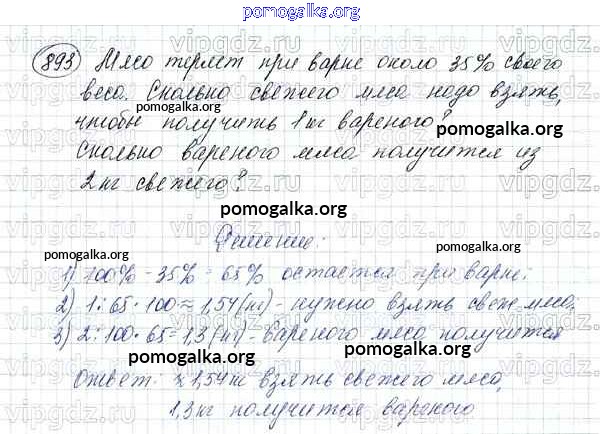 pomogalka.org
893 Мясо теряет при варке около 35% своего
веса. Сколько свежего мяса надо взять,
pomogalka.org
чтобы получить 1 кг вареного?
pomogalka.org
Сколько вареного мяса получится из
2 кг свежего?
pomogalka.org
Решение:
1) 100% - 35% = 65% остается при варке.
pomogalka.org
2) 1:65·100≈1,54(кг)- нужно взять свеж. мяса;
3) 2:100·65=1,3(кг)- вареного мяса получится
pomogalka.org
pomogalka.org
Ответ: ≈ 1,54 кг взять свежего мяса,
1,3 кг получится вареного
pomogalka.org